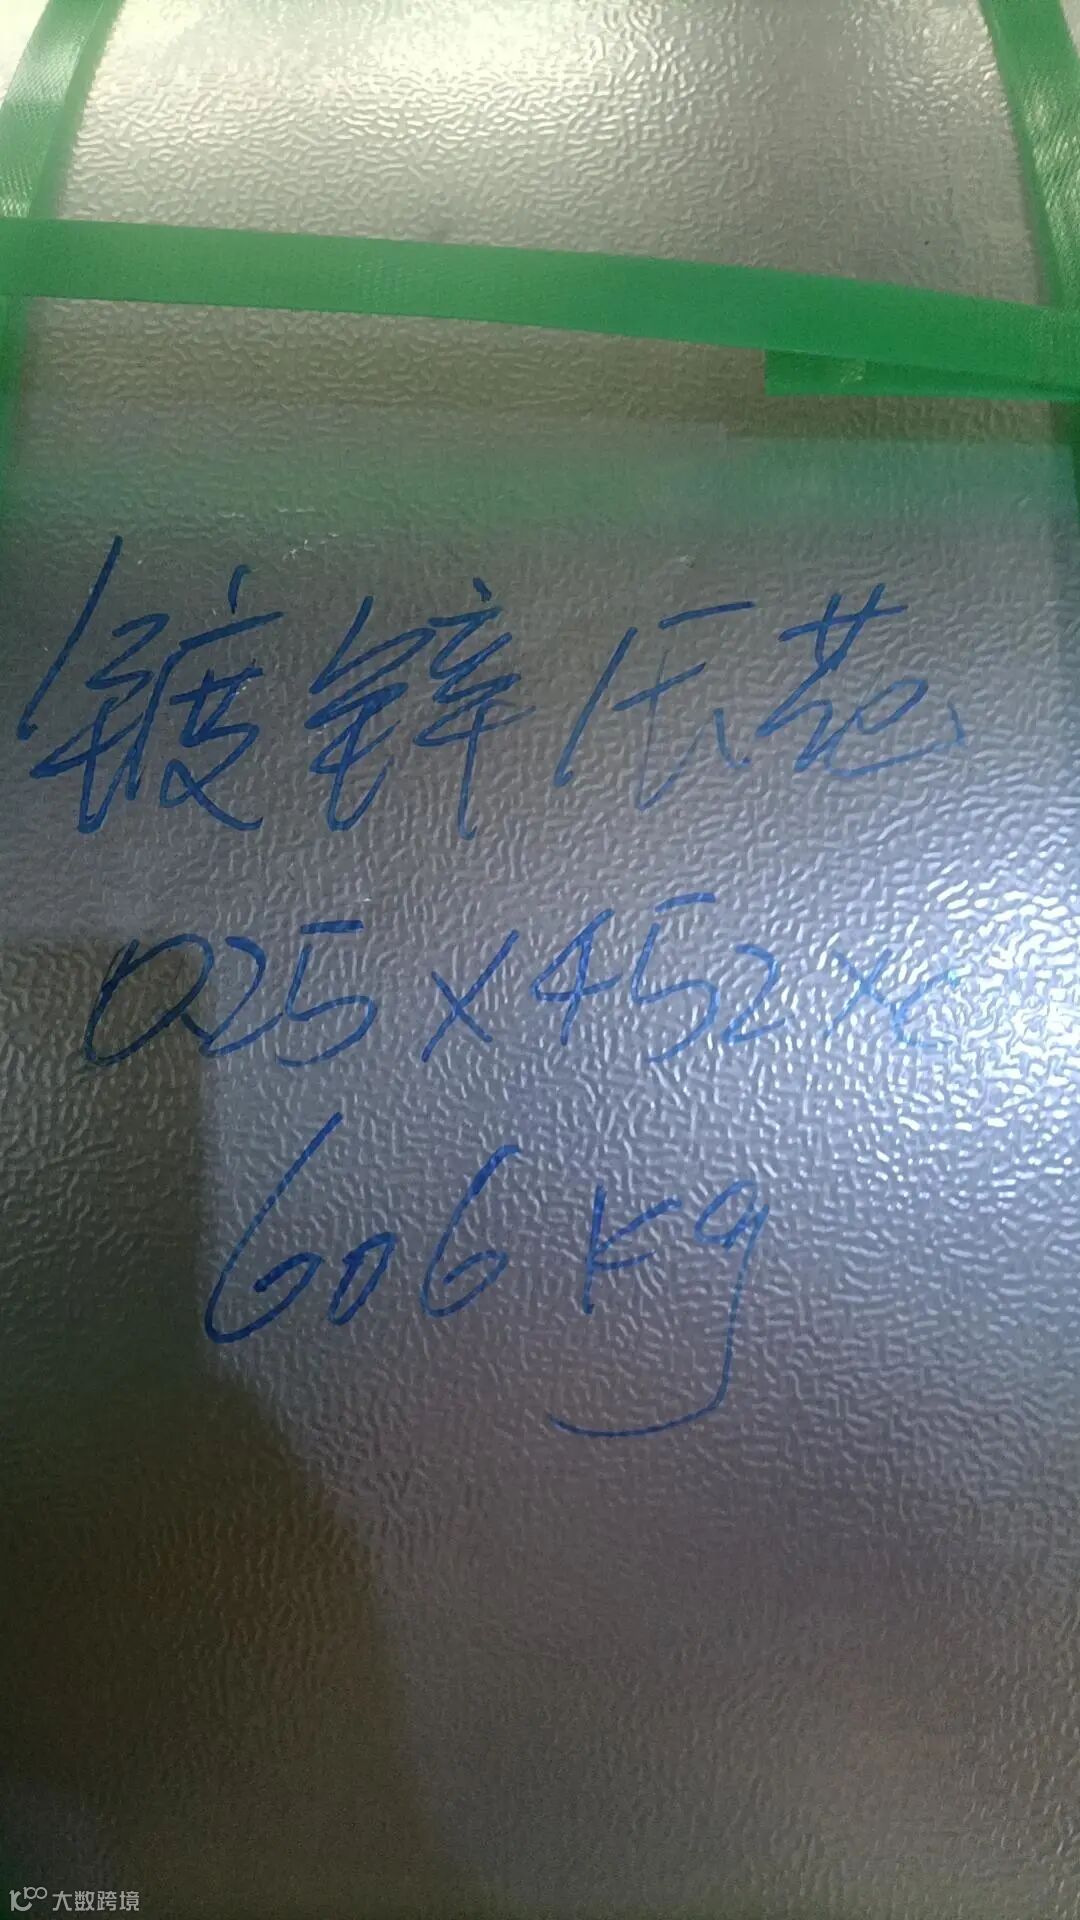 镀锌压花
025×452×c
606kg
大数跨境